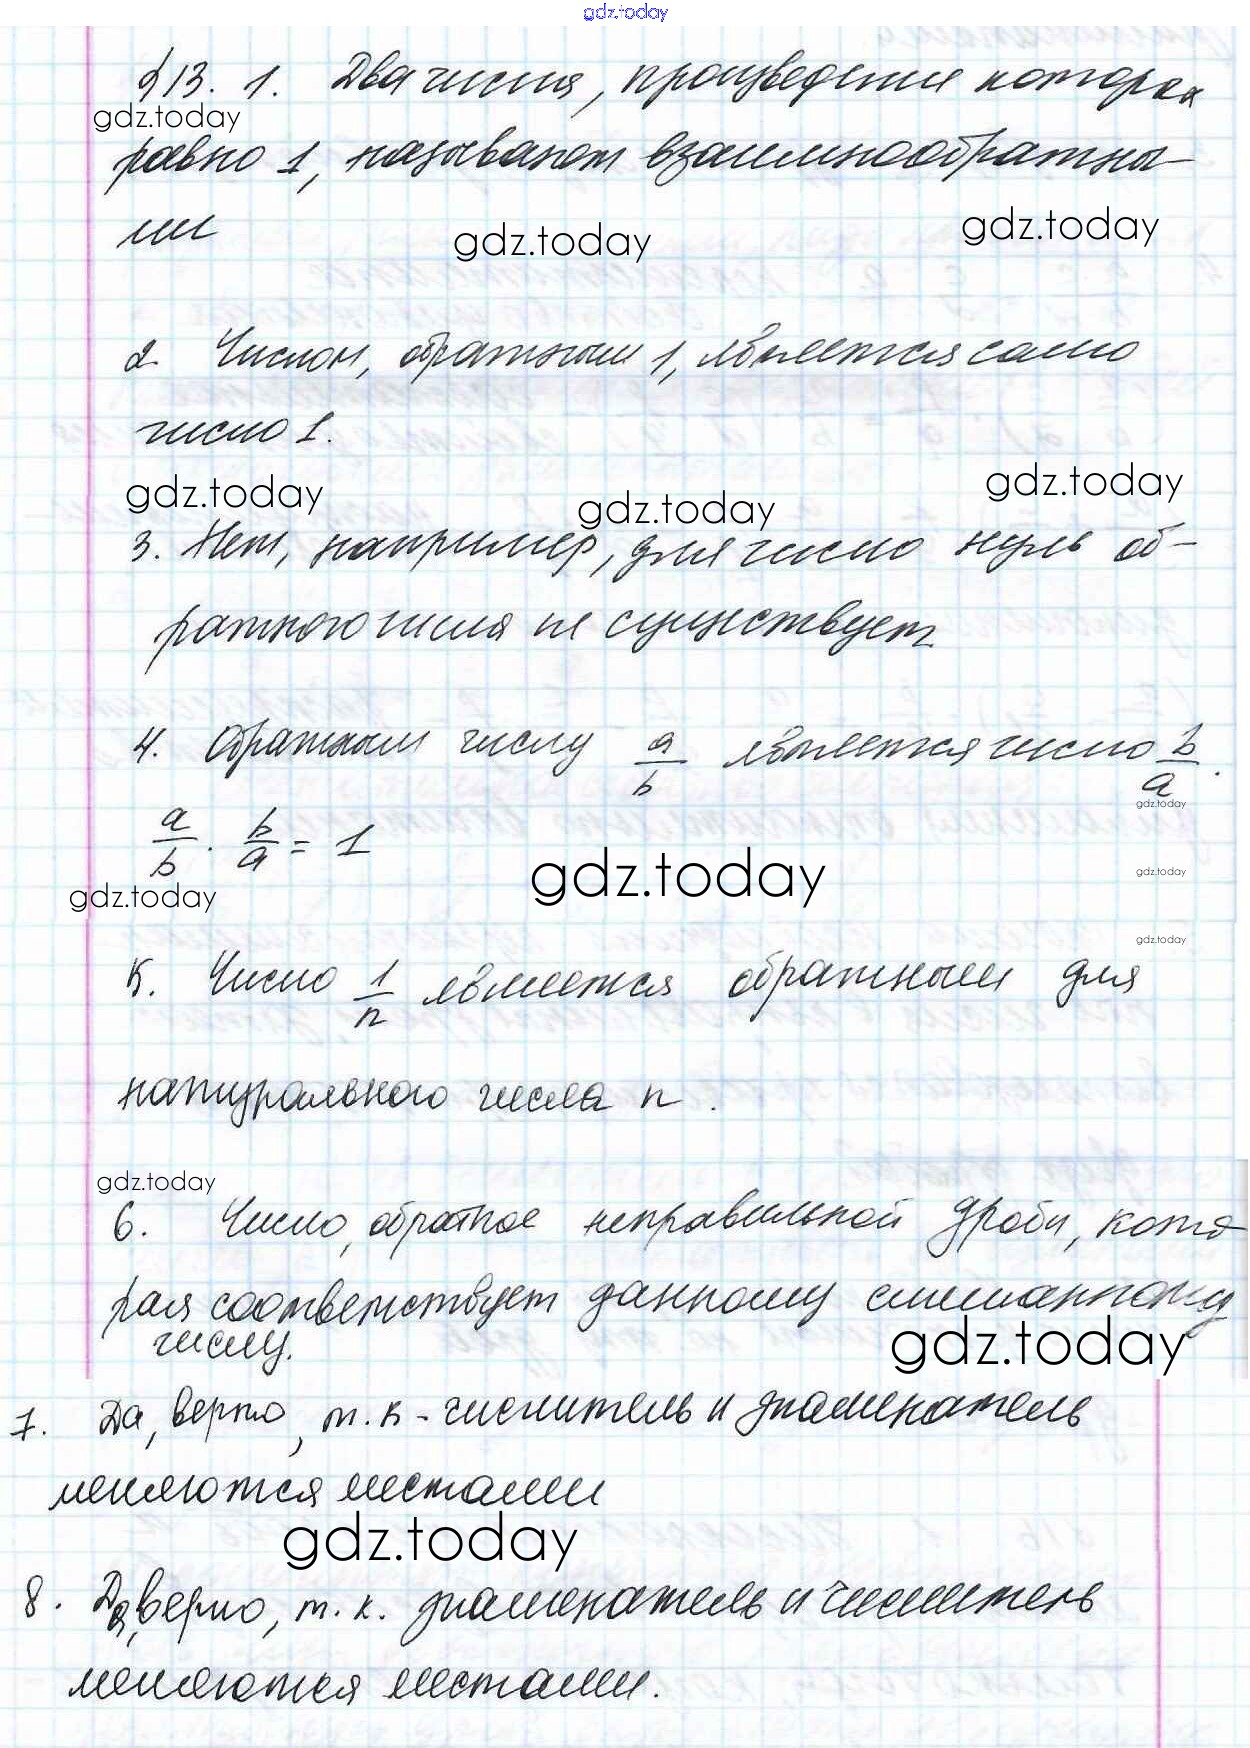 gdz.today
§13. 1. Два числа, произведение которых
gdz.today
равно 1, называют взаимнообратны-
ми
gdz.today gdz.today
2. Числом, обратным 1, является само
число 1.
gdz.today gdz.today gdz.today
3. Нет, например, для число нуль об-
ратного числа не существует
4. Обратным числу a/b является число b/a.
gdz.today
a/b · b/a = 1
gdz.today gdz.today gdz.today
gdz.today
5. Число 1/n является обратным для
натурального числа n.
gdz.today
6. Число, обратное неправильной дроби, кото
рая соответствует данному смешанному
числу.
gdz.today
7. Да, верно, т.к - числитель и знаменатель
меняются местами
gdz.today
8. Да, верно, т.к. знаменатель и числитель
меняются местами.